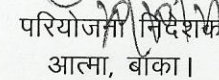 परियोजना निदेशक
आत्मा, बाँका।